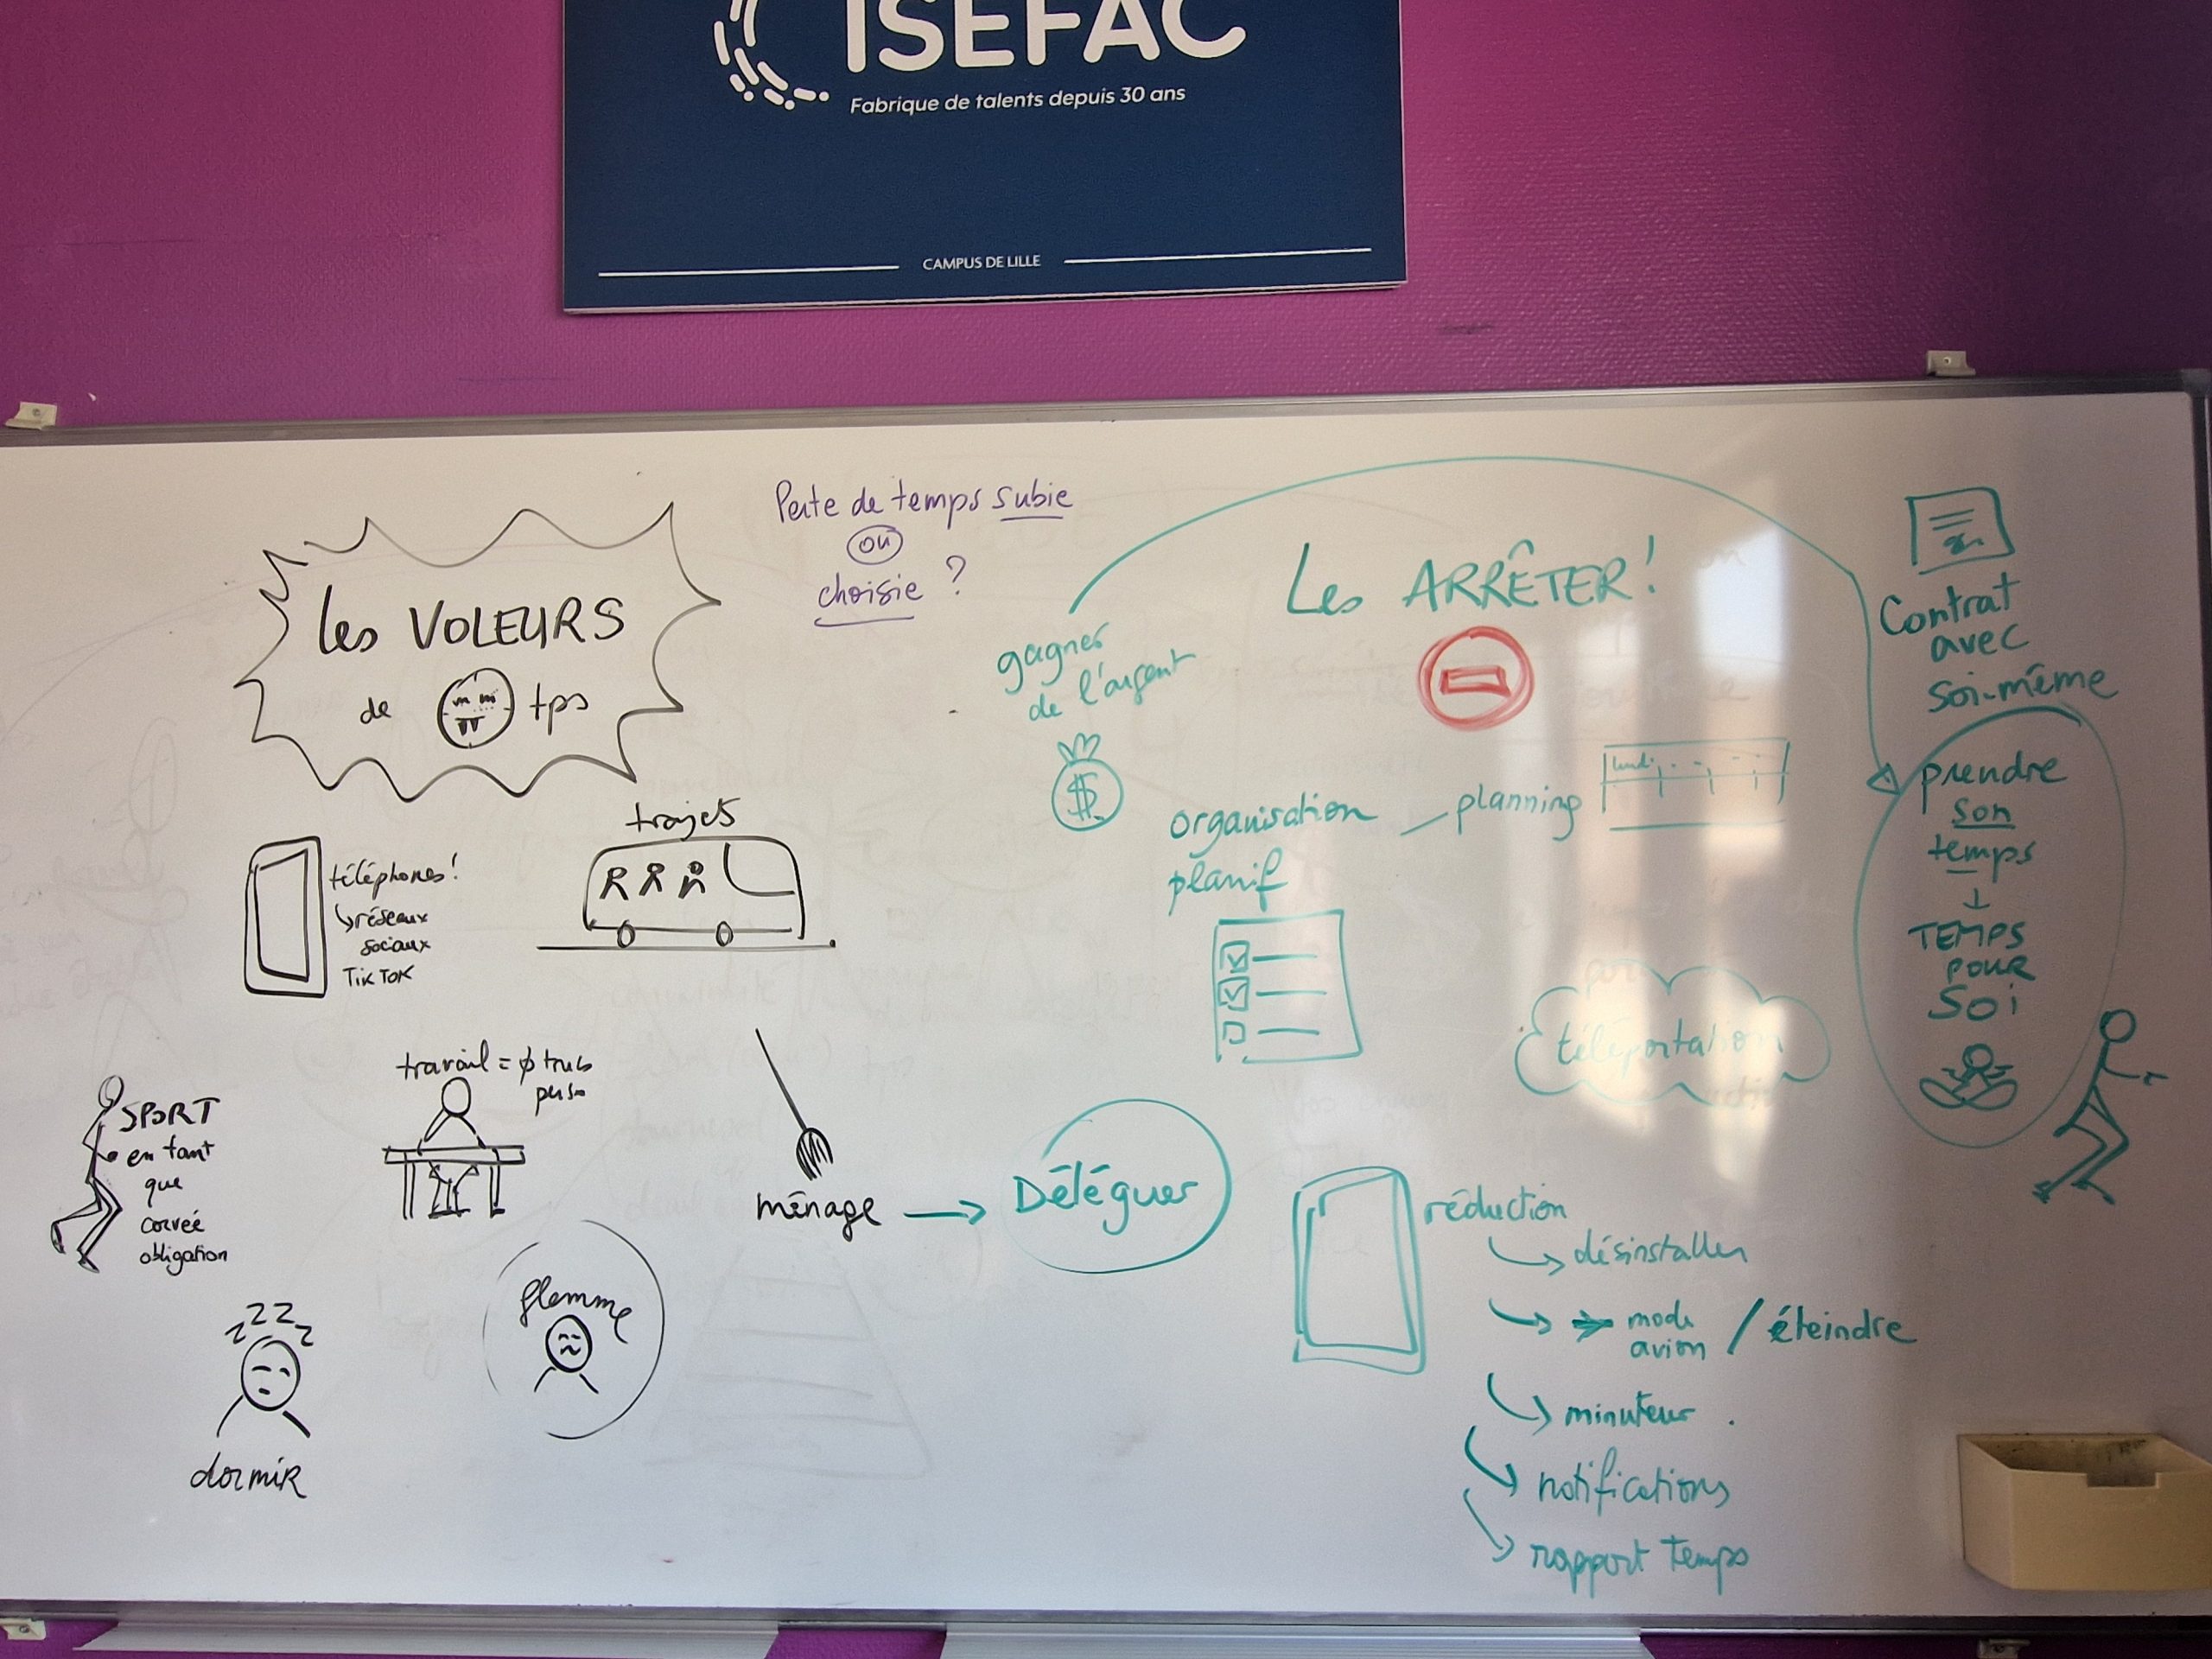 ISEFAC
Fabrique de talents depuis 30 ans
CAMPUS DE LILLE
Perte de temps subie
ou
choisie ?
les VOLEURS
de tps
téléphones !
réseaux
sociaux
TikTok
trajets
SPORT
en tant
que
corveé
obligation
travail = φ trucs
perso
ménage
flemme
zzzz
dormir
Les ARRÊTER !
gagner
de l'argent
$
organisation
planif
planning
lundi
téléportation
Déléguer
réduction
désinstaller
mode
avion / éteindre
minuteur
notifications
rapport temps
Contrat
avec
soi-même
prendre
son
temps
TEMPS
POUR
SOI